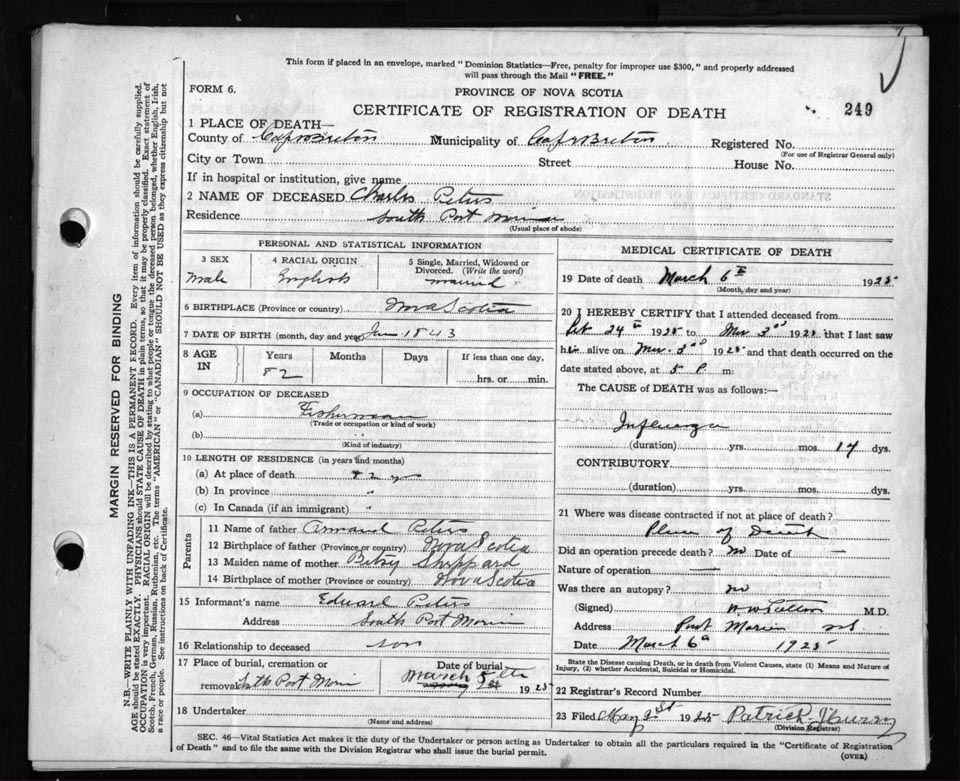 This form if placed in an envelope, marked "Dominion Statistics—Free, penalty for improper use $300," and properly addressed
will pass through the Mail "FREE."
FORM 6.
PROVINCE OF NOVA SCOTIA
CERTIFICATE OF REGISTRATION OF DEATH
249
1 PLACE OF DEATH—
County of Cape Breton Municipality of Cape Breton Registered No.
(For use of Registrar General only)
City or Town Street House No.
If in hospital or institution, give name
2 NAME OF DECEASED Charles Peters
Residence South Port Morien
(Usual place of abode)
PERSONAL AND STATISTICAL INFORMATION
3 SEX
Male
4 RACIAL ORIGIN
English
5 Single, Married, Widowed or
Divorced. (Write the word)
married
6 BIRTHPLACE (Province or country) Nova Scotia
7 DATE OF BIRTH (month, day and year) 1843
8 AGE
IN
Years
82
Months
Days
If less than one day,
hrs. or min.
9 OCCUPATION OF DECEASED
(a) Fisherman
(Trade or occupation or kind of work)
(b)
(Kind of industry)
10 LENGTH OF RESIDENCE (in years and months)
(a) At place of death
(b) In province "
(c) In Canada (if an immigrant) "
Parents
11 Name of father Armand Peters
12 Birthplace of father (Province or country) Nova Scotia
13 Maiden name of mother Betsy Sheppard
14 Birthplace of mother (Province or country) Nova Scotia
15 Informant's name Edward Peters
Address South Port Morien
16 Relationship to deceased son
17 Place of burial, cremation or
removal South Port Morien
Date of burial
March 8th 1925
18 Undertaker
(Name and address)
MEDICAL CERTIFICATE OF DEATH
19 Date of death March 6th 1925
(Month, day and year)
20 I HEREBY CERTIFY that I attended deceased from
Feb 24th 1925 to Mar. 3rd 1925 that I last saw
him alive on Mar. 3rd 1925 and that death occurred on the
date stated above, at 5 P m:
The CAUSE of DEATH was as follows:—
Influenza
(duration) yrs. mos. 17 dys.
CONTRIBUTORY
(duration) yrs. mos. dys.
21 Where was disease contracted if not at place of death?
Place of Death
Did an operation precede death? no Date of —
Nature of operation —
Was there an autopsy? no
(Signed) M.D.
Address Port Morien NS
Date March 6th 1925
State the Disease causing Death, or in death from Violent Causes, state (1) Means and Nature of
Injury, (2) whether Accidental, Suicidal or Homicidal.
22 Registrar's Record Number
23 Filed May 1925 Patrick
(Division Registrar)
SEC. 46—Vital Statistics Act makes it the duty of the Undertaker or person acting as Undertaker to obtain all the particulars required in the "Certificate of Registration
of Death" and to file the same with the Division Registrar who shall issue the burial permit.
(OVER)
MARGIN RESERVED FOR BINDING
N.B.—WRITE PLAINLY WITH UNFADING INK—THIS IS A PERMANENT RECORD. Every item of information should be carefully supplied.
AGE should be stated EXACTLY. PHYSICIANS should STATE CAUSE OF DEATH in plain terms, so that it may be properly classified. Exact statement of
OCCUPATION is very important. RACIAL ORIGIN will be described by stating to what people or tongue the deceased person belonged, whether English, Irish,
Scotch, French, German, Russian, Ruthenian, etc. The terms "AMERICAN" or "CANADIAN" SHOULD NOT BE USED as they express citizenship but not
a race or people. See instructions on back of Certificate.